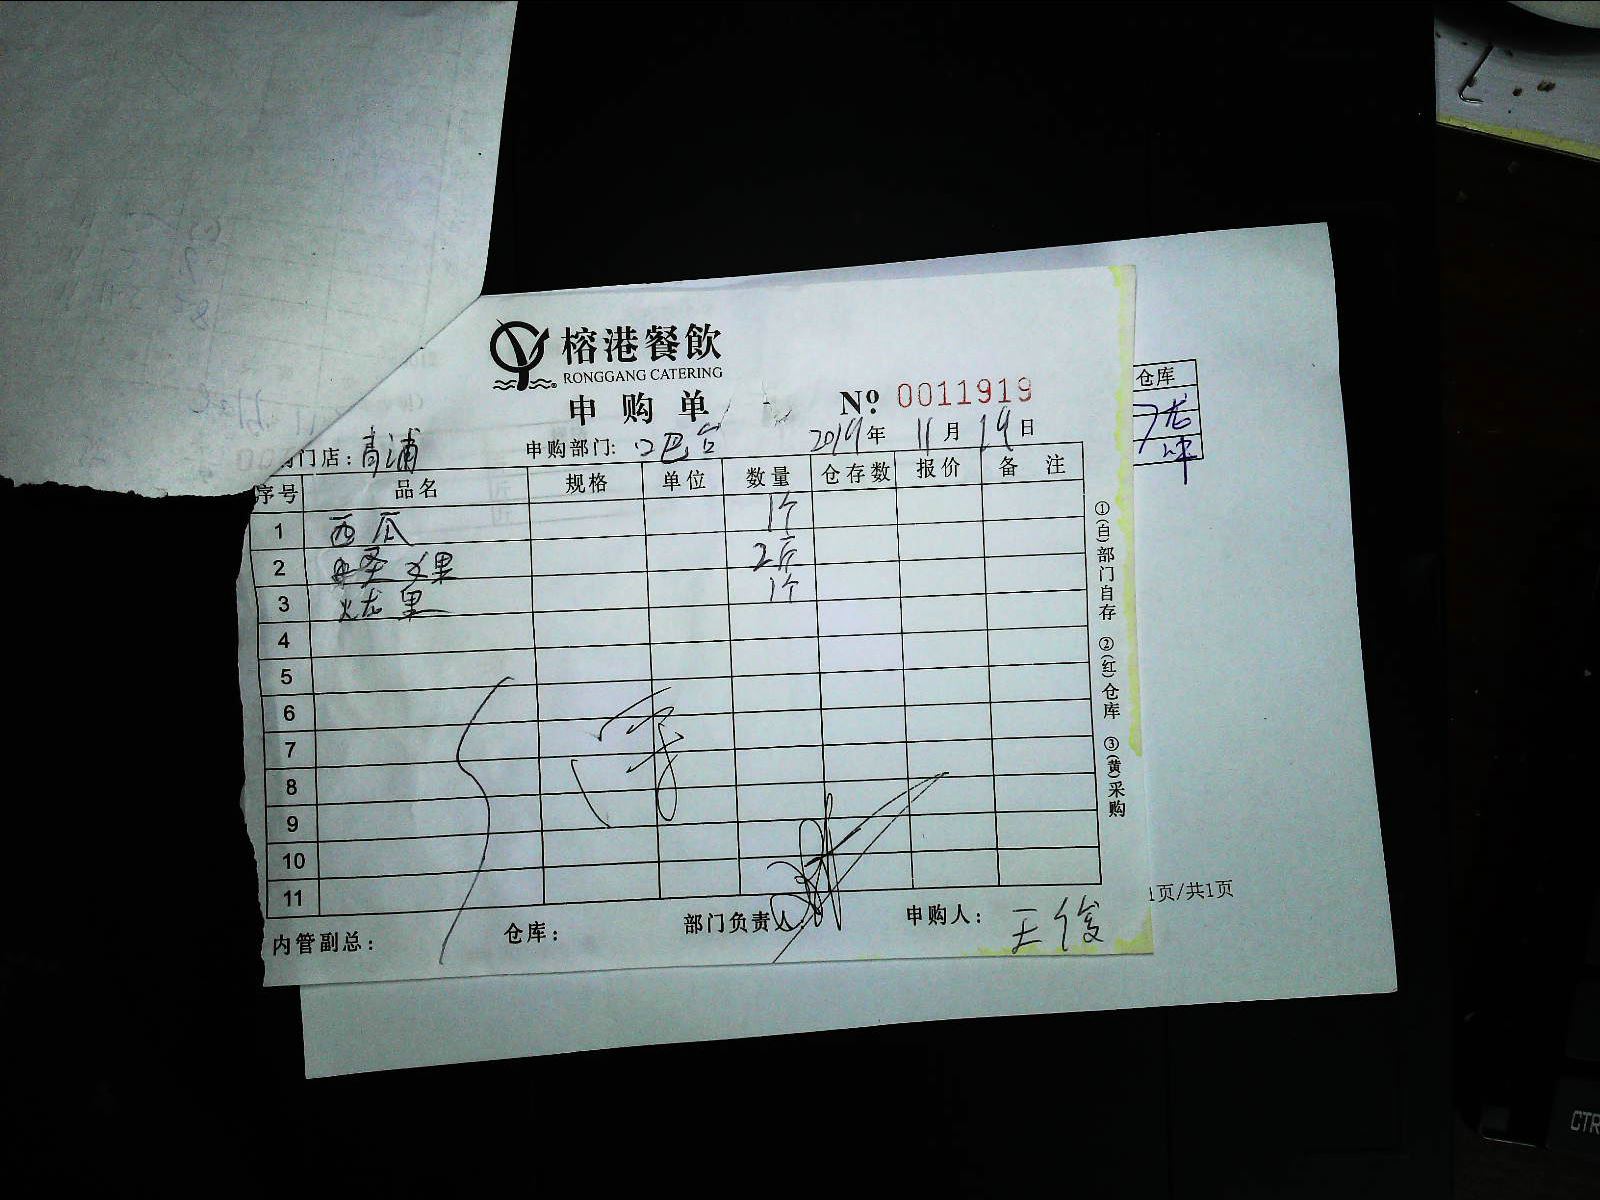 榕港餐飲
RONGGANG CATERING
申购单 № 0011919
门店：青浦 申购部门：吧台 2019年11月19日
序号 品名 规格 单位 数量 仓存数 报价 备注
1 西瓜 1个
2 圣女果 2斤
3 火龙果 1个
4
5
6
7
8
9
10
11
内管副总： 仓库： 部门负责人： 申购人：王俊
①(白)部门自存 ②(红)仓库 ③(黄)采购
仓库
1页/共1页
CTR